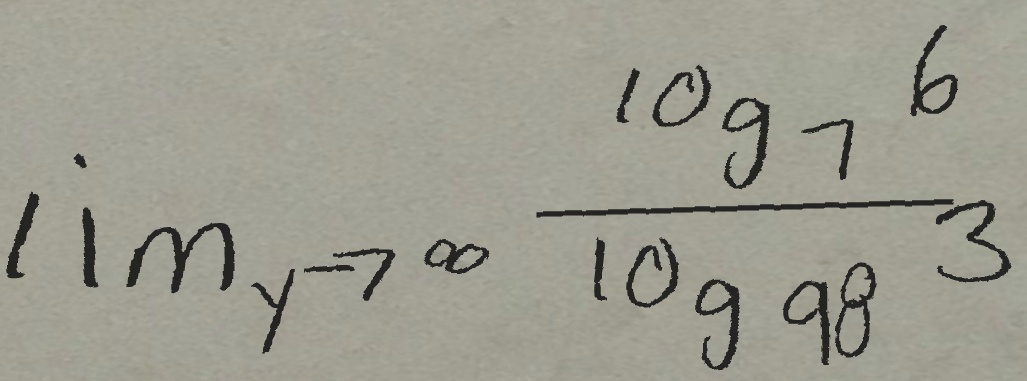 \lim_{y \to \infty} \frac{\log_7 6}{\log_{98} 3}